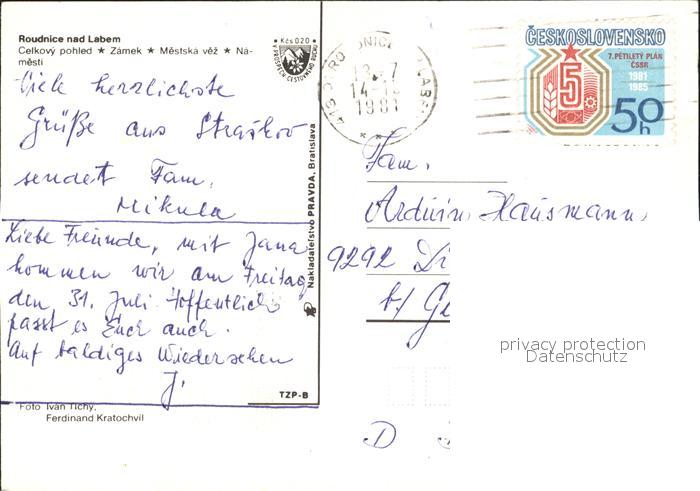 Roudnice nad Labem
Celkový pohled ★ Zámek ★ Městská věž ★ Ná-
městí
Kčs 0,20
Viele herzlichste
Grüße aus Straškov
sendet Fam.
Mikula
Liebe Freunde, mit Jana
kommen wir am Freitag
den 31. Juli. Hoffentlich
passt es Euch auch.
Auf baldiges Wiedersehen
J.
TZP-B
Foto Ivan Tichý,
Ferdinand Kratochvíl
Nakladatelství PRAVDA, Bratislava
14
1981
ČESKOSLOVENSKO
7. PĚTILETÝ PLÁN
ČSSR
1981
1985
5
50h
Fam.
Arduin Hausmann,
9292 Di
b/ Ge
D
privacy protection
Datenschutz